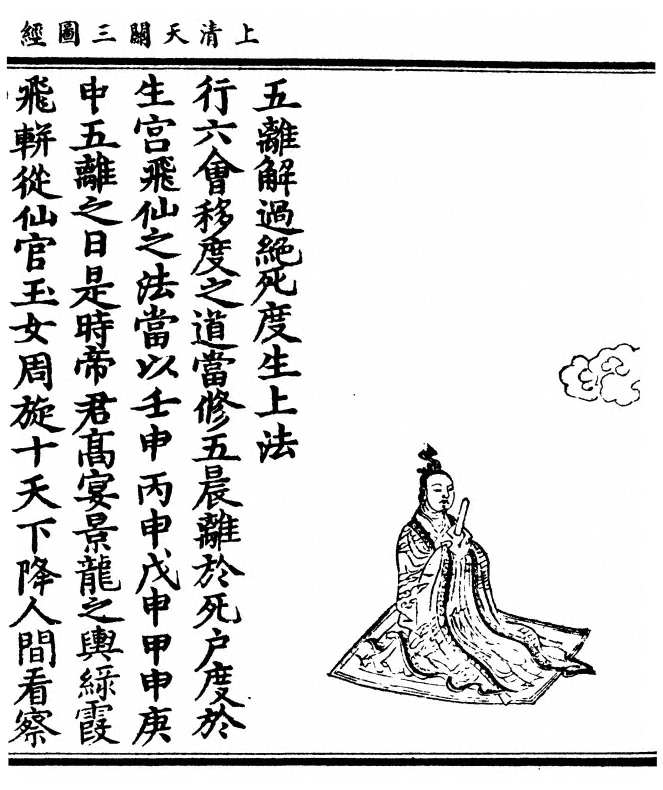 上清天關三圖經
五離解過絶死度生上法
行六會移度之道當修五晨離於死户度於
生宫飛仙之法當以壬申丙申戊申甲申庚
申五離之日是時帝君髙宴景龍之輿緑霞
飛軿從仙官玉女周旋十天下降人間看察